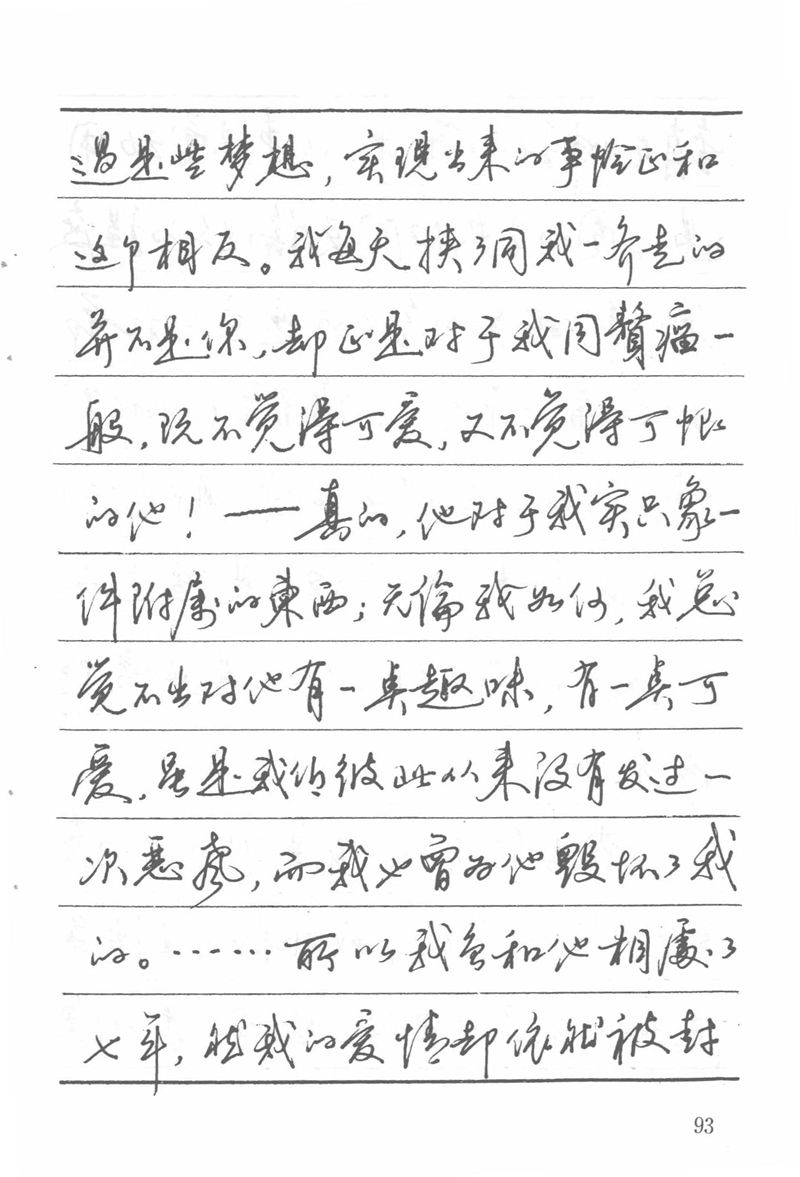 过是些梦想，实现出来的事恰正和
这个相反。我每天挟了同我一齐走的
并不是你，却正是对于我同赘瘤一
般，既不觉得可爱，又不觉得可恨
的他！——真的，他对于我实只象一
件附属的東西；无倫我如何，我总
觉不出对他有一点趣味，有一点可
爱，虽是我们彼此从来没有发过一
次恶声，而我也曾为他毁坏了我
的。……所以我虽和他相處了
七年，然我的爱情却依然被封
93